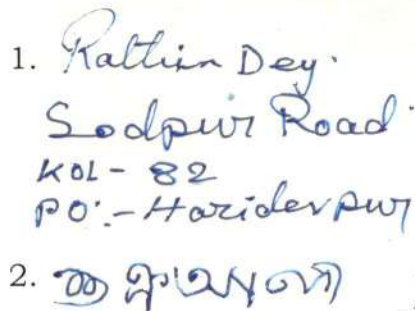 1. Kalltian Dey.
Sodpur Road.
KOL - 82
PO:- Haridevpur
2.